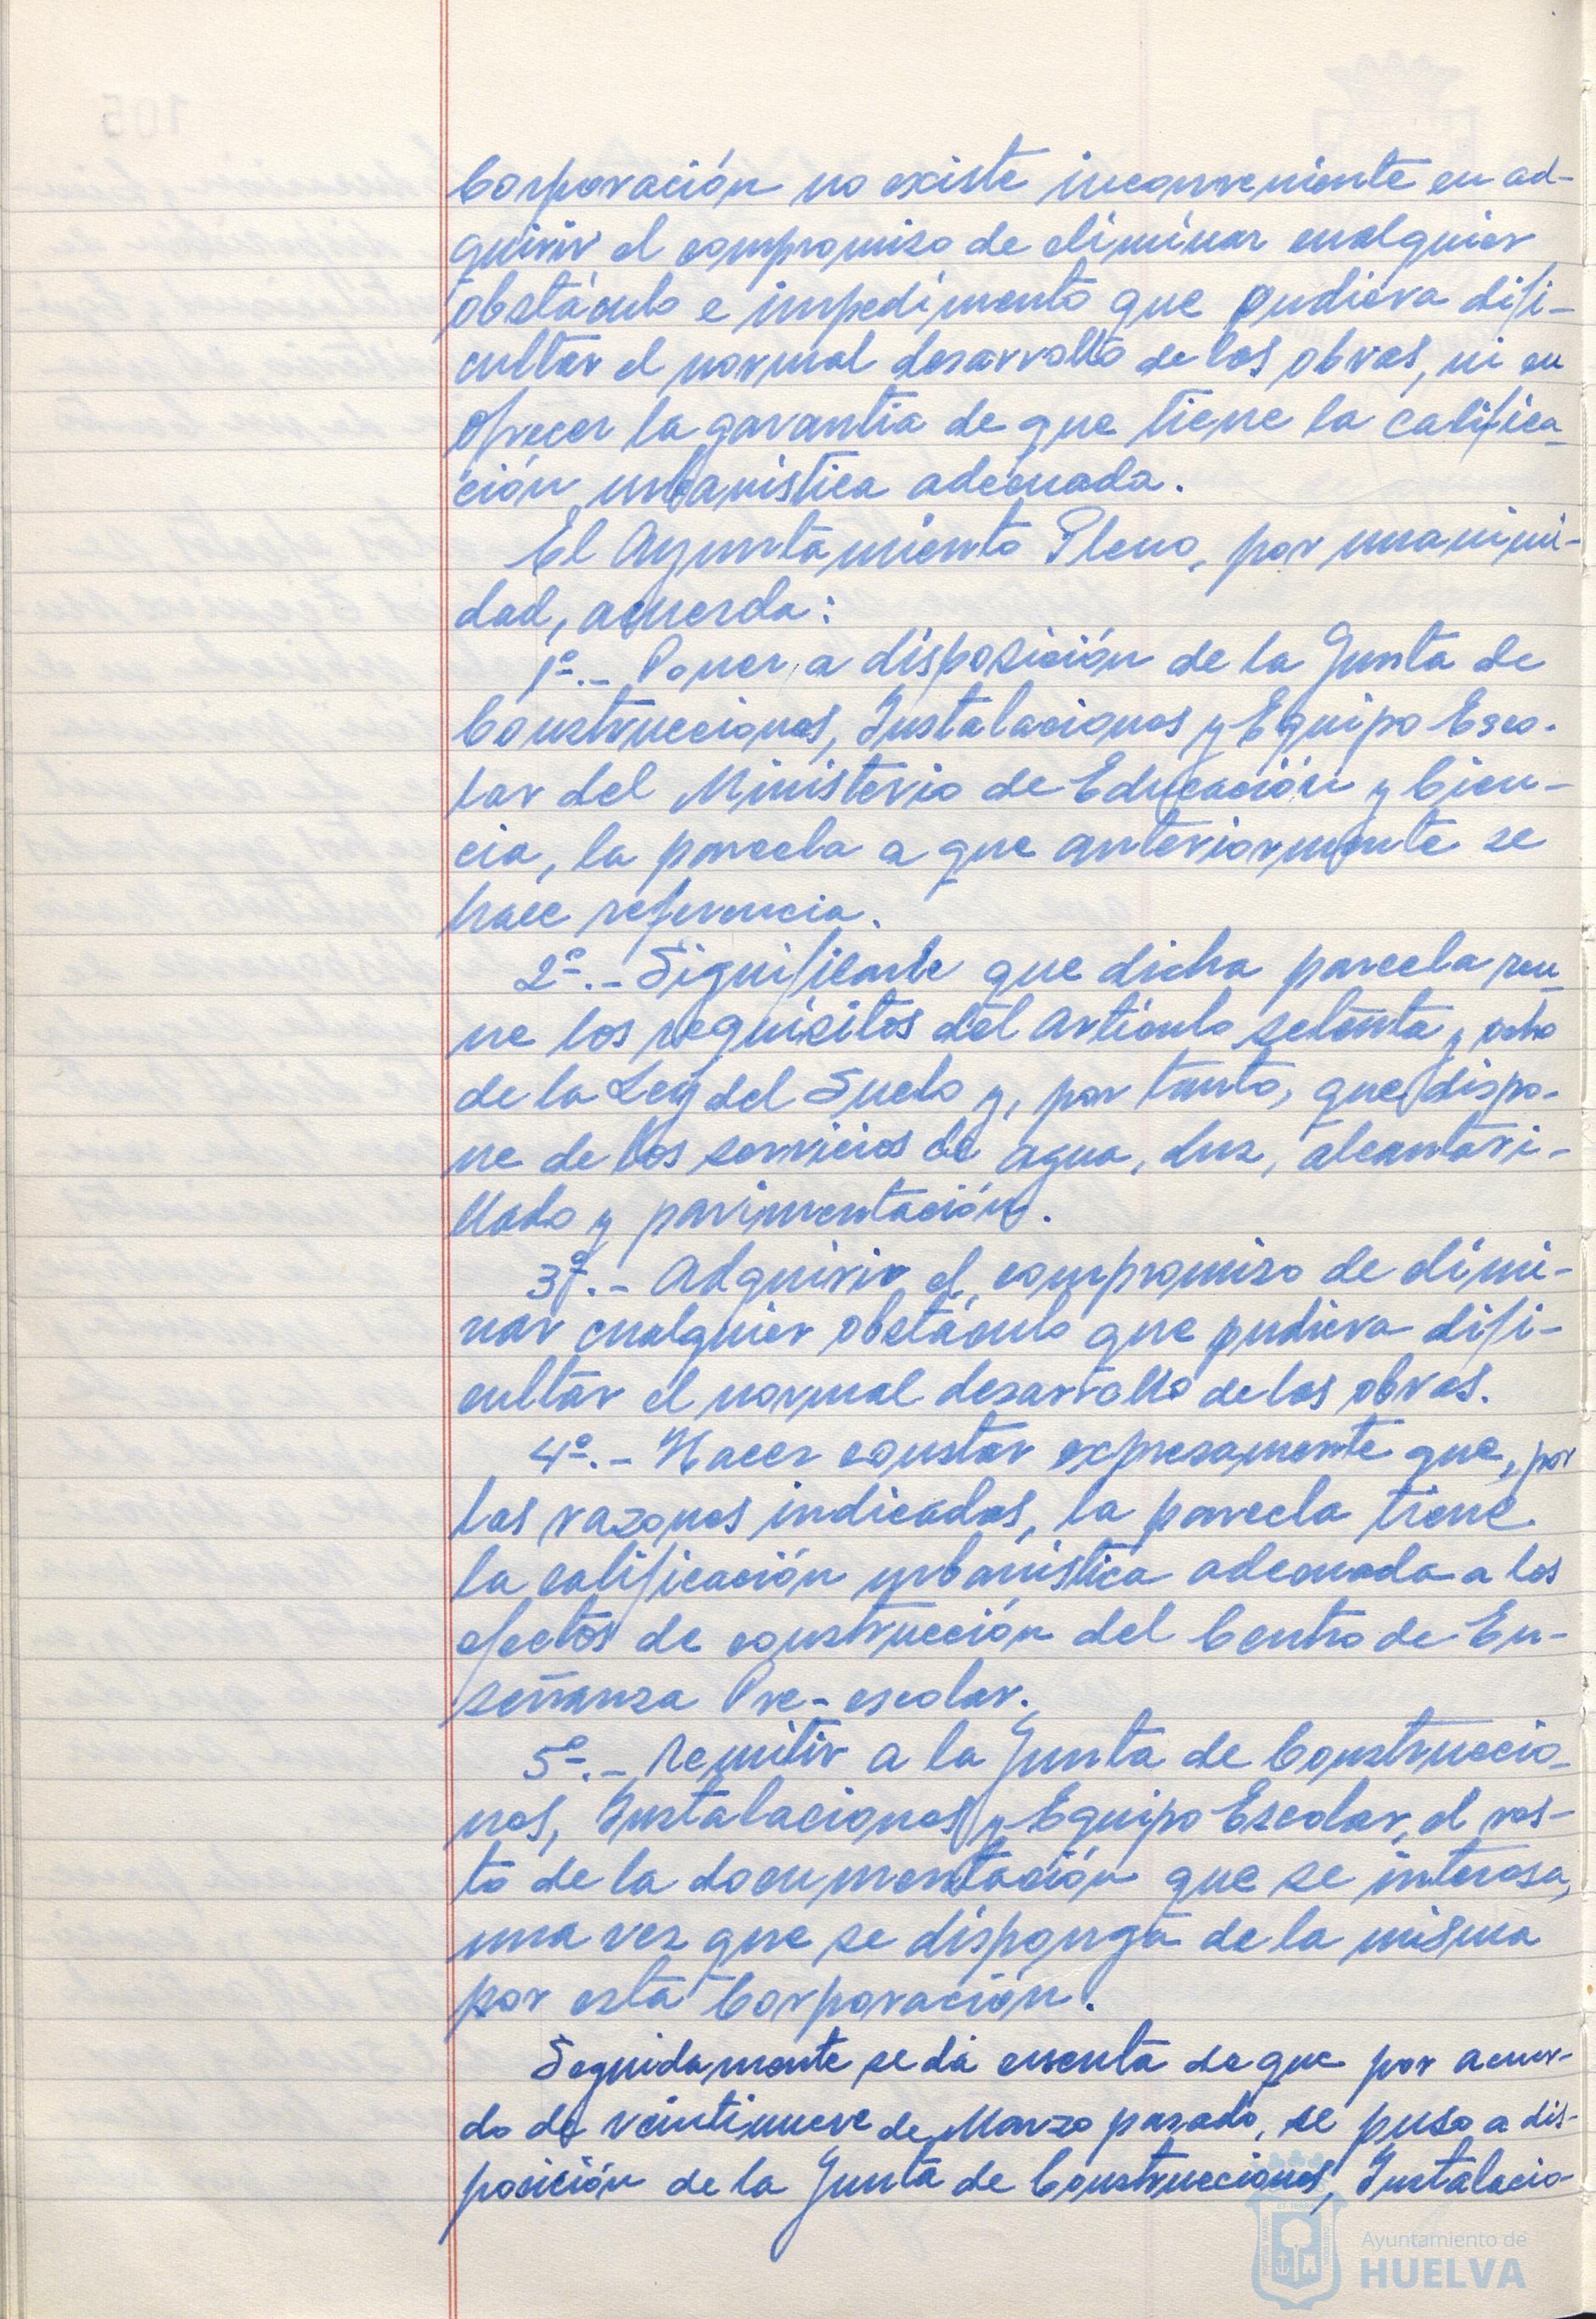 Corporación no existe inconveniente en ad-
quirir el compromiso de eliminar cualquier
obstáculo e impedimento que pudiera difi-
cultar el normal desarrollo de las obras, ni en
ofrecer la garantía de que tiene la califica-
ción urbanística adecuada.
El Ayuntamiento Pleno, por unanimi-
dad, acuerda:
1º.- Poner a disposición de la Junta de
Construcciones, Instalaciones y Equipo Esco-
lar del Ministerio de Educación y Cien-
cia, la parcela a que anteriormente se
hace referencia.
2º.- Significarle que dicha parcela reu-
ne los requisitos del artículo setenta y ocho
de la Ley del Suelo y, por tanto, que dispo-
ne de los servicios de agua, luz, alcantari-
llado y pavimentación.
3º.- Adquirir el compromiso de elimi-
nar cualquier obstáculo que pudiera difi-
cultar el normal desarrollo de las obras.
4º.- Hacer constar expresamente que, por
las razones indicadas, la parcela tiene
la calificación urbanística adecuada a los
efectos de construcción del Centro de En-
señanza Pre-escolar.
5º.- Remitir a la Junta de Construccio-
nes, Instalaciones y Equipo Escolar, el res-
to de la documentación que se interesa,
una vez que se disponga de la misma
por esta Corporación.
Seguidamente se dá cuenta de que por acuer-
do de veintinueve de Marzo pasado, se puso a dis-
posición de la Junta de Construcciones, Instalacio-
Ayuntamiento de
HUELVA